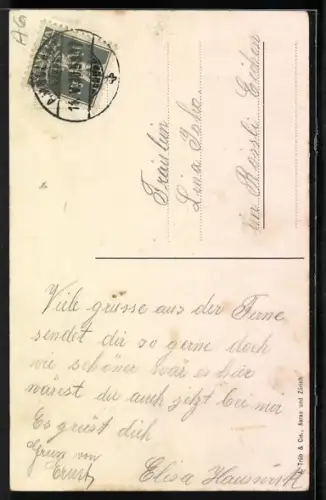 AG
Fräulein
Lina
im Rössli Eiken
Viele grüsse aus der Ferne
sendet dir so gerne doch
wie schöner wär es hier
wärest du auch jetzt bei mir
Es grüsst dich
Gruss von
Ernst
Elisa Hauswirth
Trüb & Cie., Aarau und Zürich